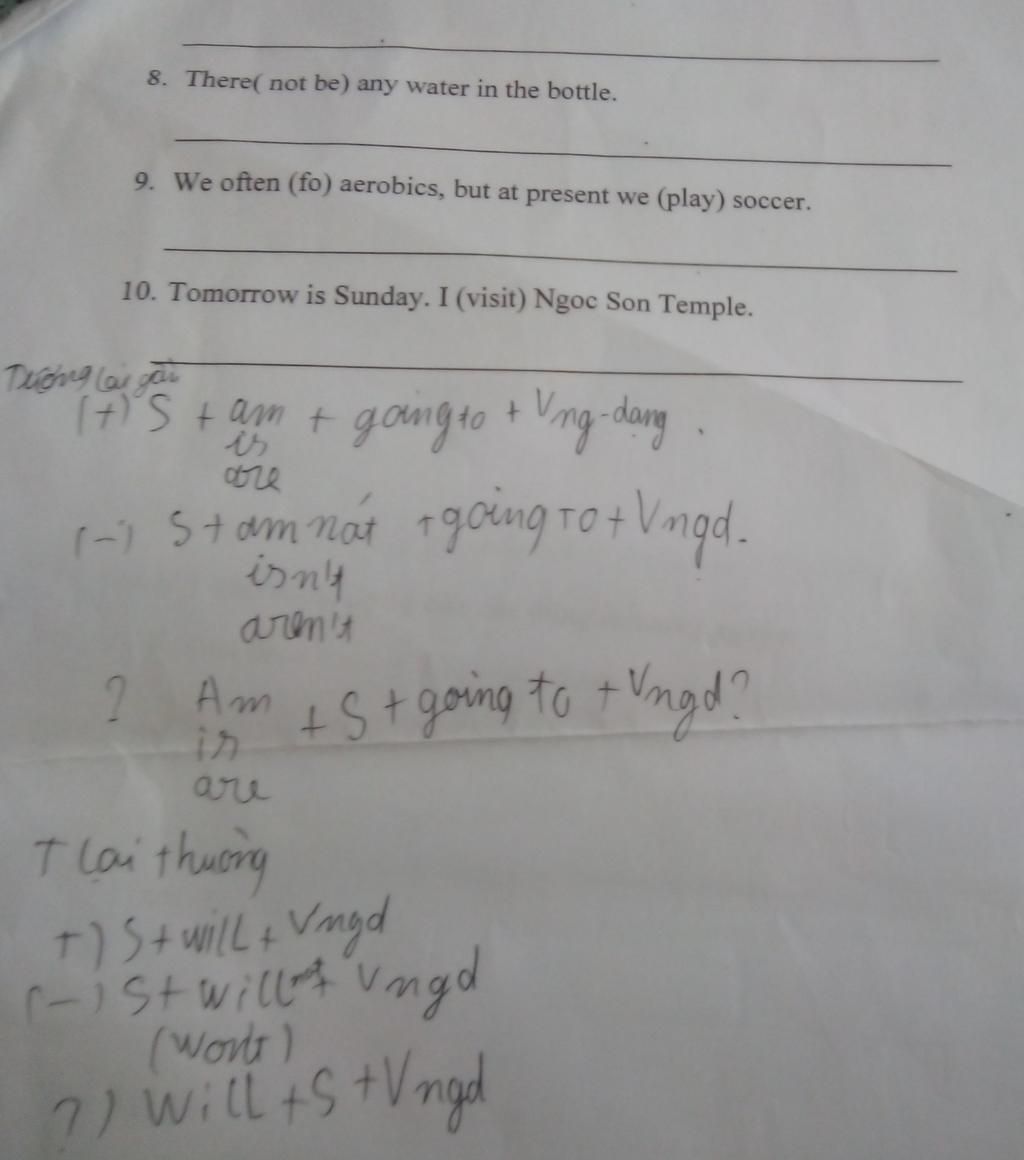 8. There( not be) any water in the bottle.
9. We often (fo) aerobics, but at present we (play) soccer.
10. Tomorrow is Sunday. I (visit) Ngoc Son Temple.
Tương lai gần
(+) S + am + going to + Vng-dạng.
is
are
(-) S + am nót + going to + Vngd.
isn't
aren't
? Am + S + going to + Vngd?
is
are
T lai thường
+) S + will + Vngd
(-) S + will not + Vngd
(wont)
?) Will + S + Vngd